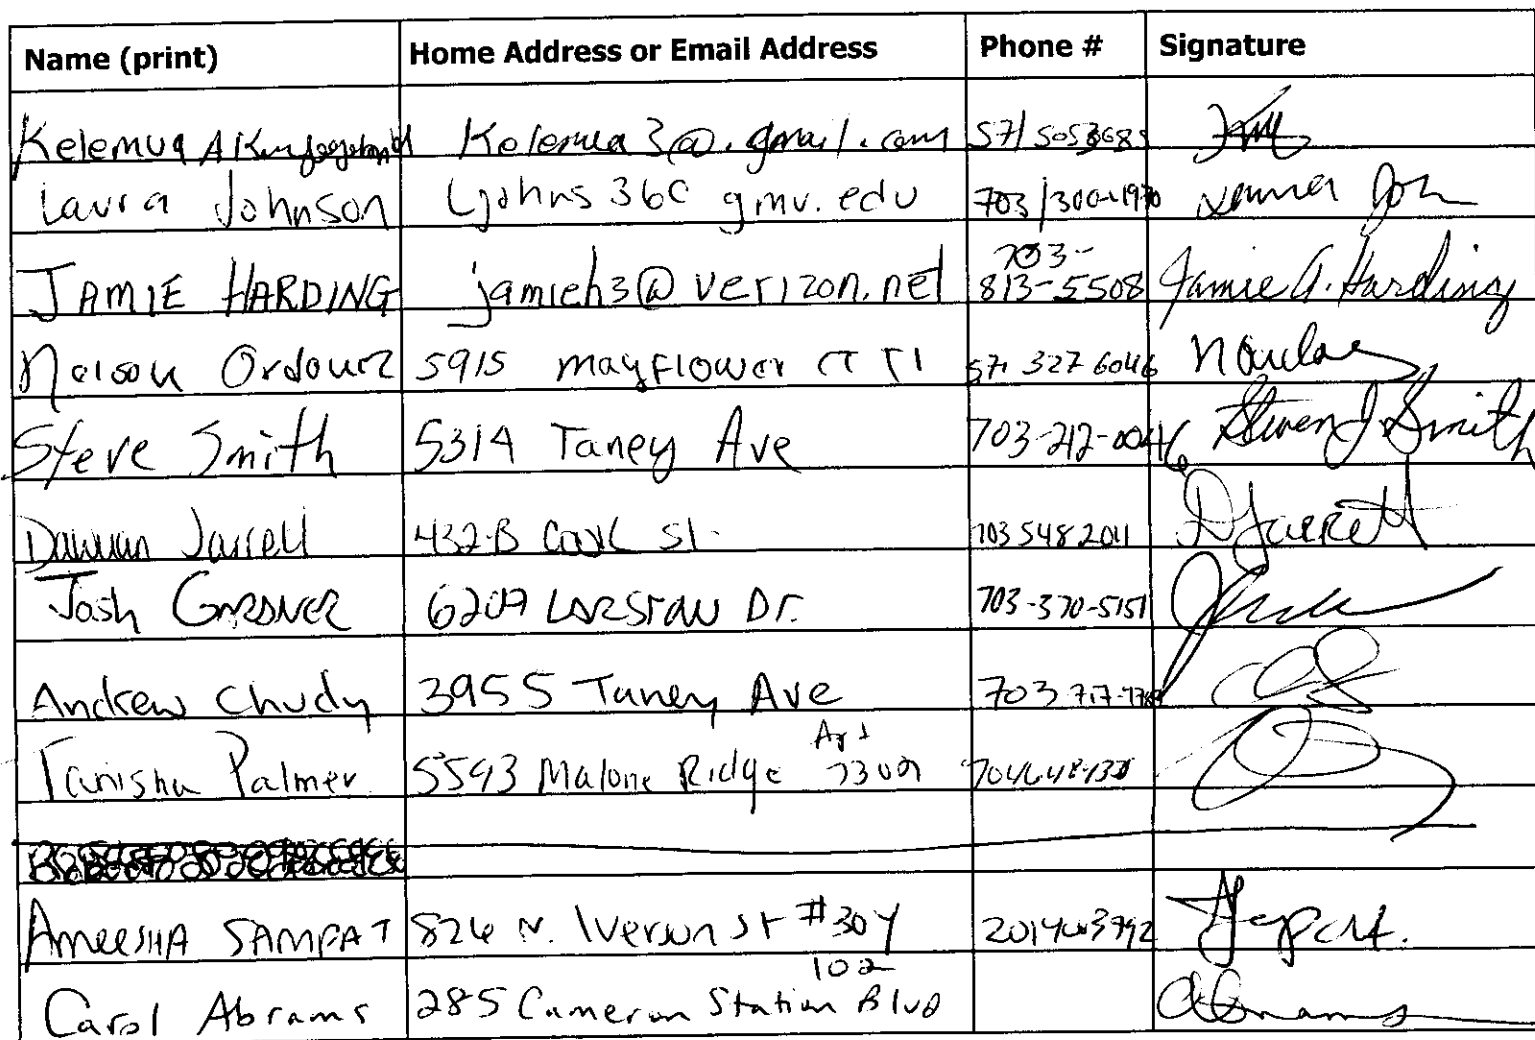 Name (print) Home Address or Email Address Phone # Signature
Kelemua Kelemua3@.gmail.com 571 505
Laura Johnson Ljohns36@ gmu.edu 703/300-1970
703-
JAMIE HARDING jamieh3@verizon.net 813-5508 Jamie A. Harding
Nelson Ordonez 5915 mayflower CT T1 571 327 6046
Steve Smith 5314 Taney Ave 703-212-0046 Steven J. Smith
Jarrell 432-B St. 703 548 2011 DJarrett
Josh GARDNER 6207 Dr. 703-370-5151
Andrew Chudy 3955 Taney Ave 703 717-7789
Apt
Tanisha Palmer 5593 Malone Ridge 7302
AMEESHA SAMPAT 826 N. Iverson St #304
102
Carol Abrams 285 Cameron Station Blvd CAbrams